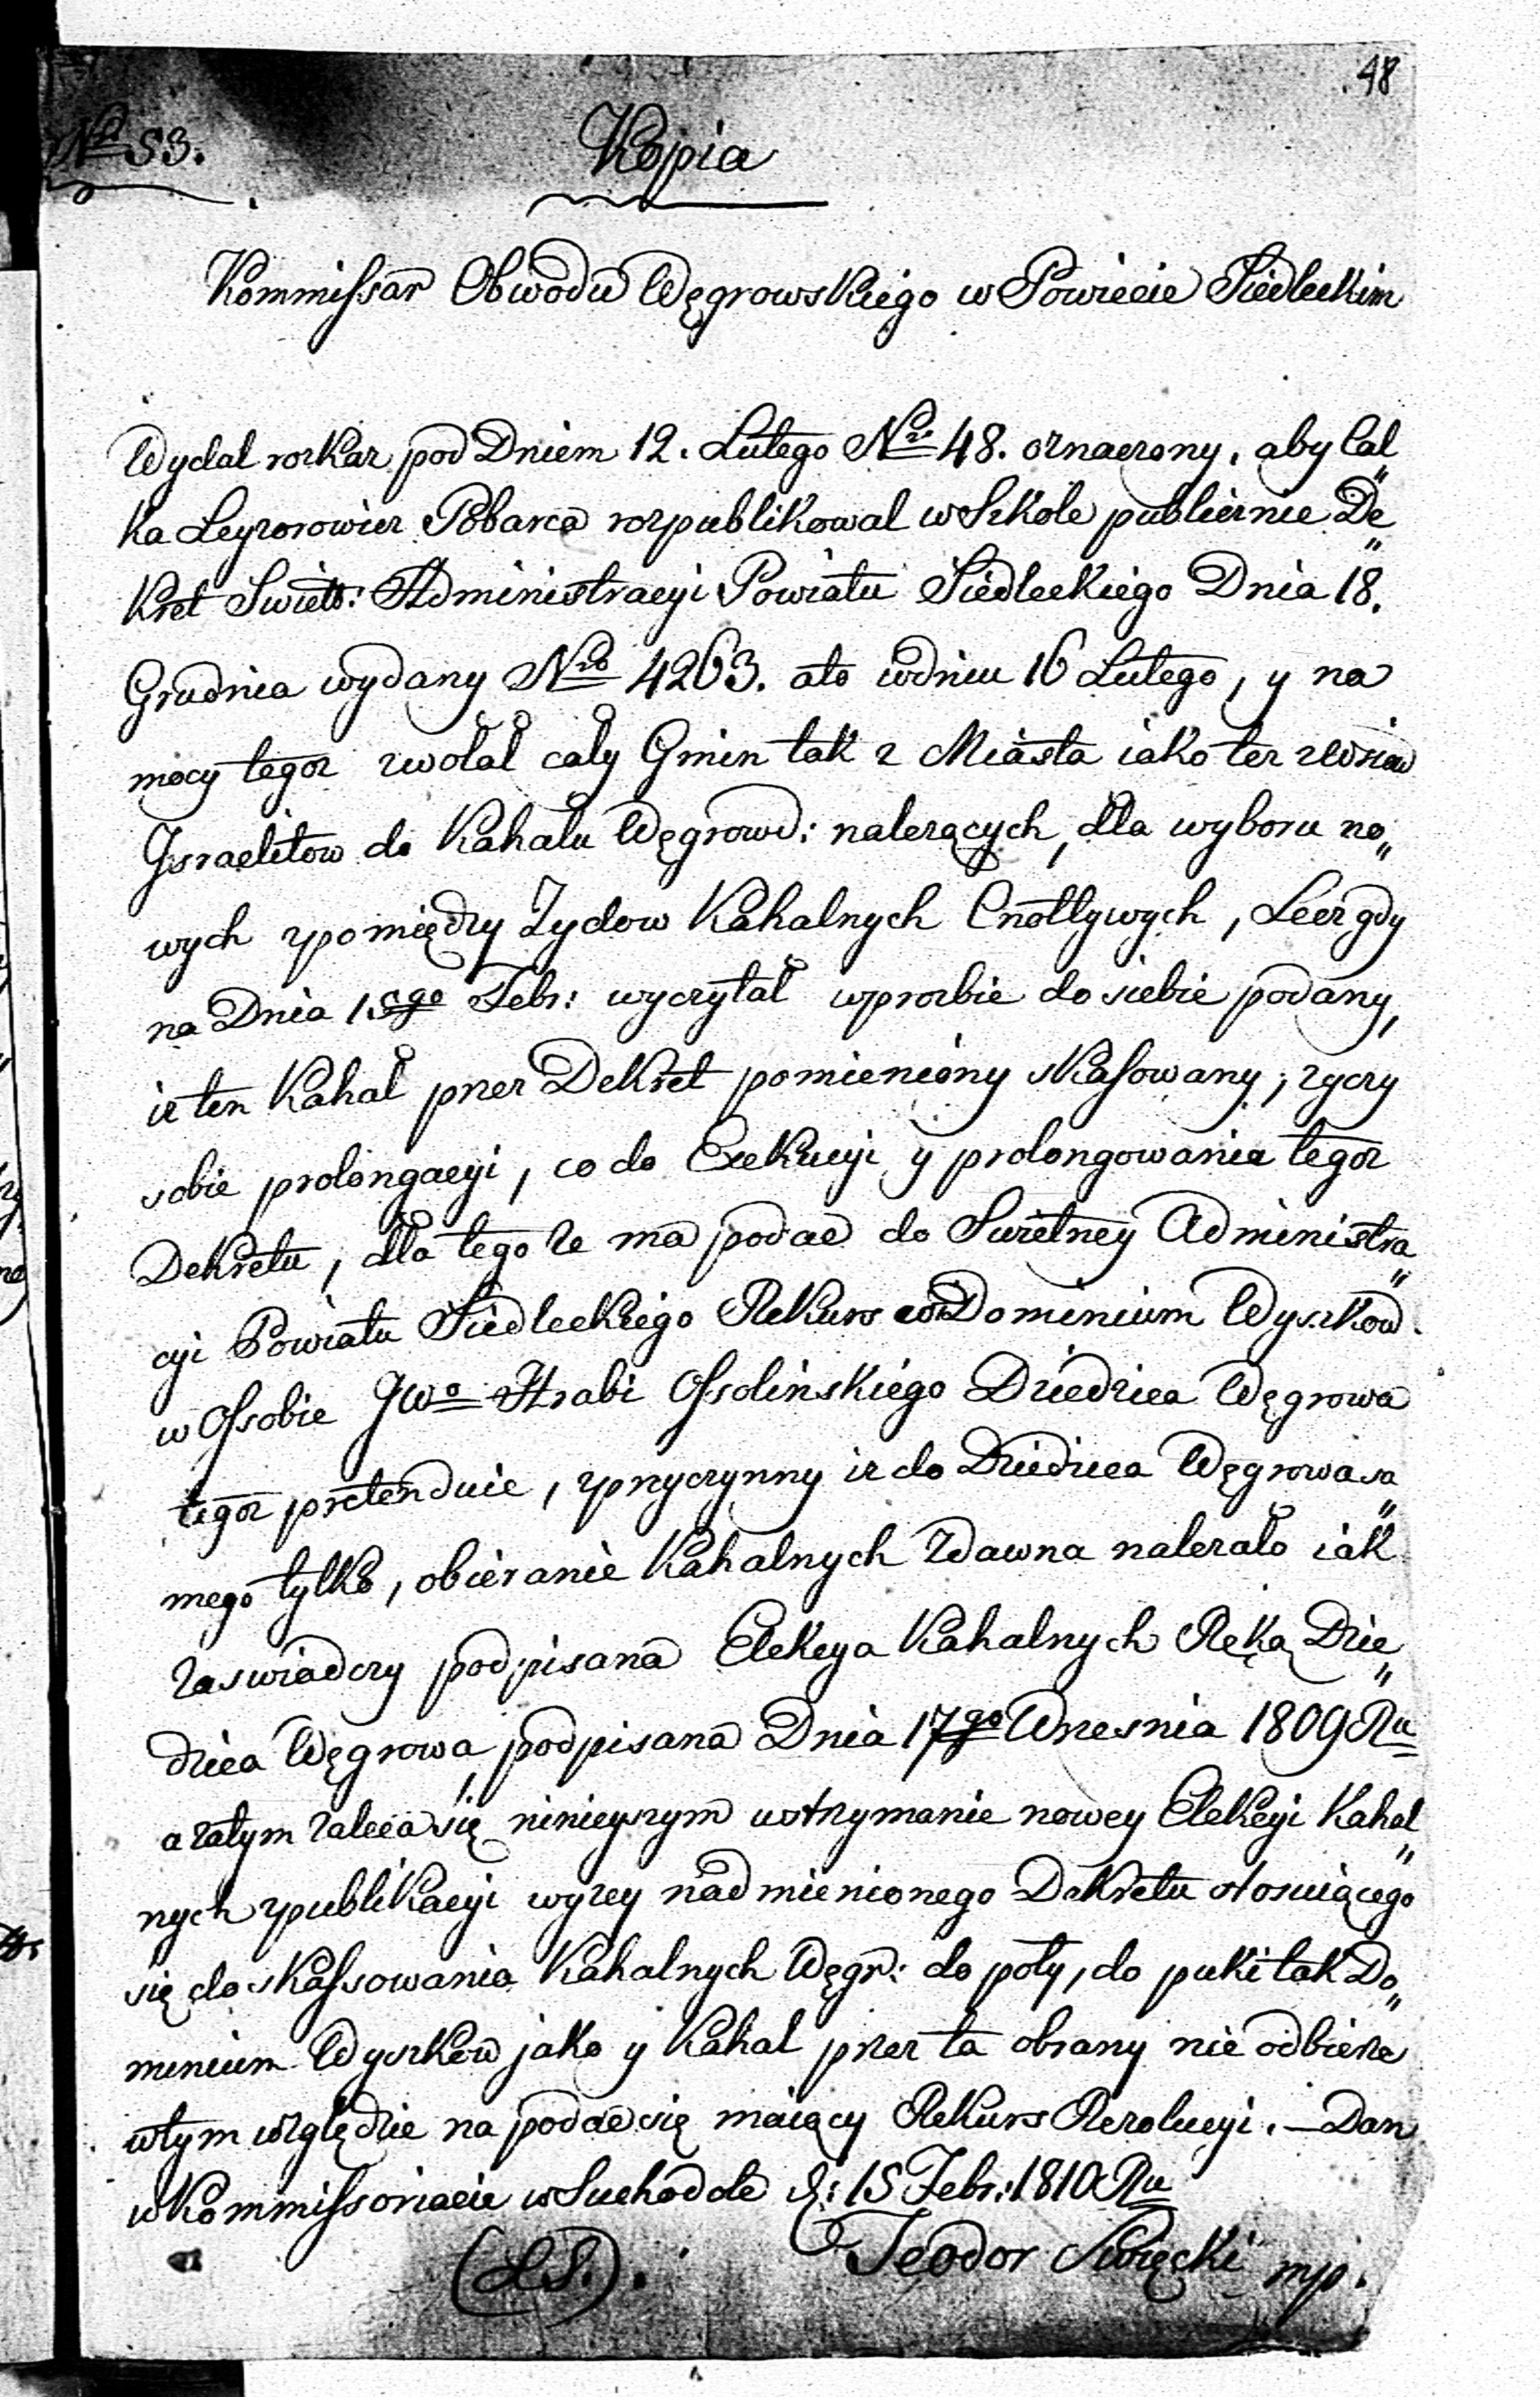 48
No 53.
Kopia
Kommissar Obwodu Węgrowskiego w Powiecie Siedleckim
Wydal rozkaz pod Dniem 12. Lutego Nro 48. oznaczony, aby Cal„
ka Leyzorowicz Pobarca rozpublikowal w Szkole publicznie De„
kret Swiett: Administracyi Powiatu Siedleckiego Dnia 18.
Grudnia wydany Nro 4263. ato wdniu 16 Lutego, y na
mocy tegoz zwołał cały Gmin tak z Miasta iako tez zWsiow
Israelitow do Kahalu Węgrow: nalezących, dla wyboru no„
wych zpomiędzy Zydow Kahalnych Cnotlywych, Lecz gdy
na Dnia 15go Febr: wyczytał wprozbie do siebie podany,
iz ten Kahał przez Dekret pomieniony skasowany, zyczy
sobie prolongacyi, co do Exekucyi y prolongowania tegoz
Dekretu, dla tego ze ma podac do Swietney Administra„
cyi Powiatu Siedleckiego Rekurs Dominium Wyszkow
w Ossobie JWo Hrabi Ossolinskiego Dziedzica Węgrowa
tegoz pretenduie, zprzyczynny iz do Dziedzica Węgrowa sa„
mego tylko, obieranie Kahalnych zdawna nalezało iak
zaswiadczy podpisana Elekcya Kahalnych Ręką Dzie„
dzica Węgrowa podpisana Dnia 17go Wrzesnia 1809 Ru
a zatym zaleca się ninieyszym wstrzymanie nowey Elekcyi Kahal„
nych zpublikacyi wyzey nadmienionego Dekretu stosuiącego
się do skassowania Kahalnych Węgr: do poty, do puki tak Do„
minium Wyszkow jako y Kahal przez ta obrany nie odbierze
wtym względzie na podac się maiący Rekurs Rezolucyi. – Dan
w Kommissoriacie w Suchodole d: 15 Febr: 1810 Ru
(LS.). Teodor Suręcki mp.